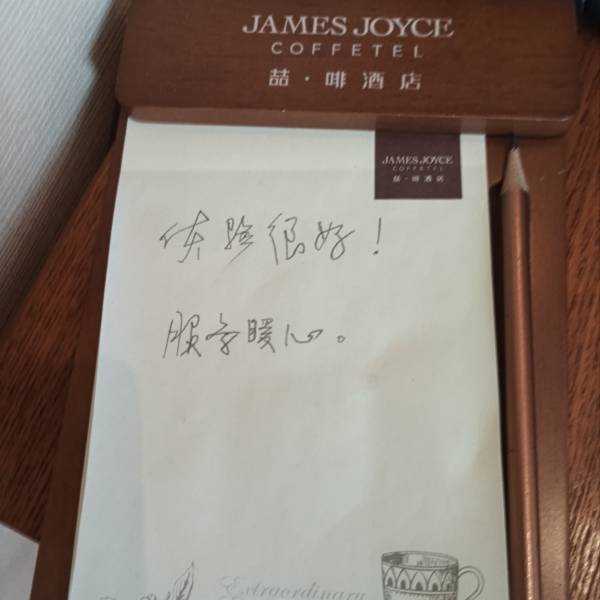 JAMES JOYCE
COFFETEL
喆·啡酒店
JAMES JOYCE
COFFETEL
喆·啡酒店
体验很好！
服务暖心。
Extraordinary